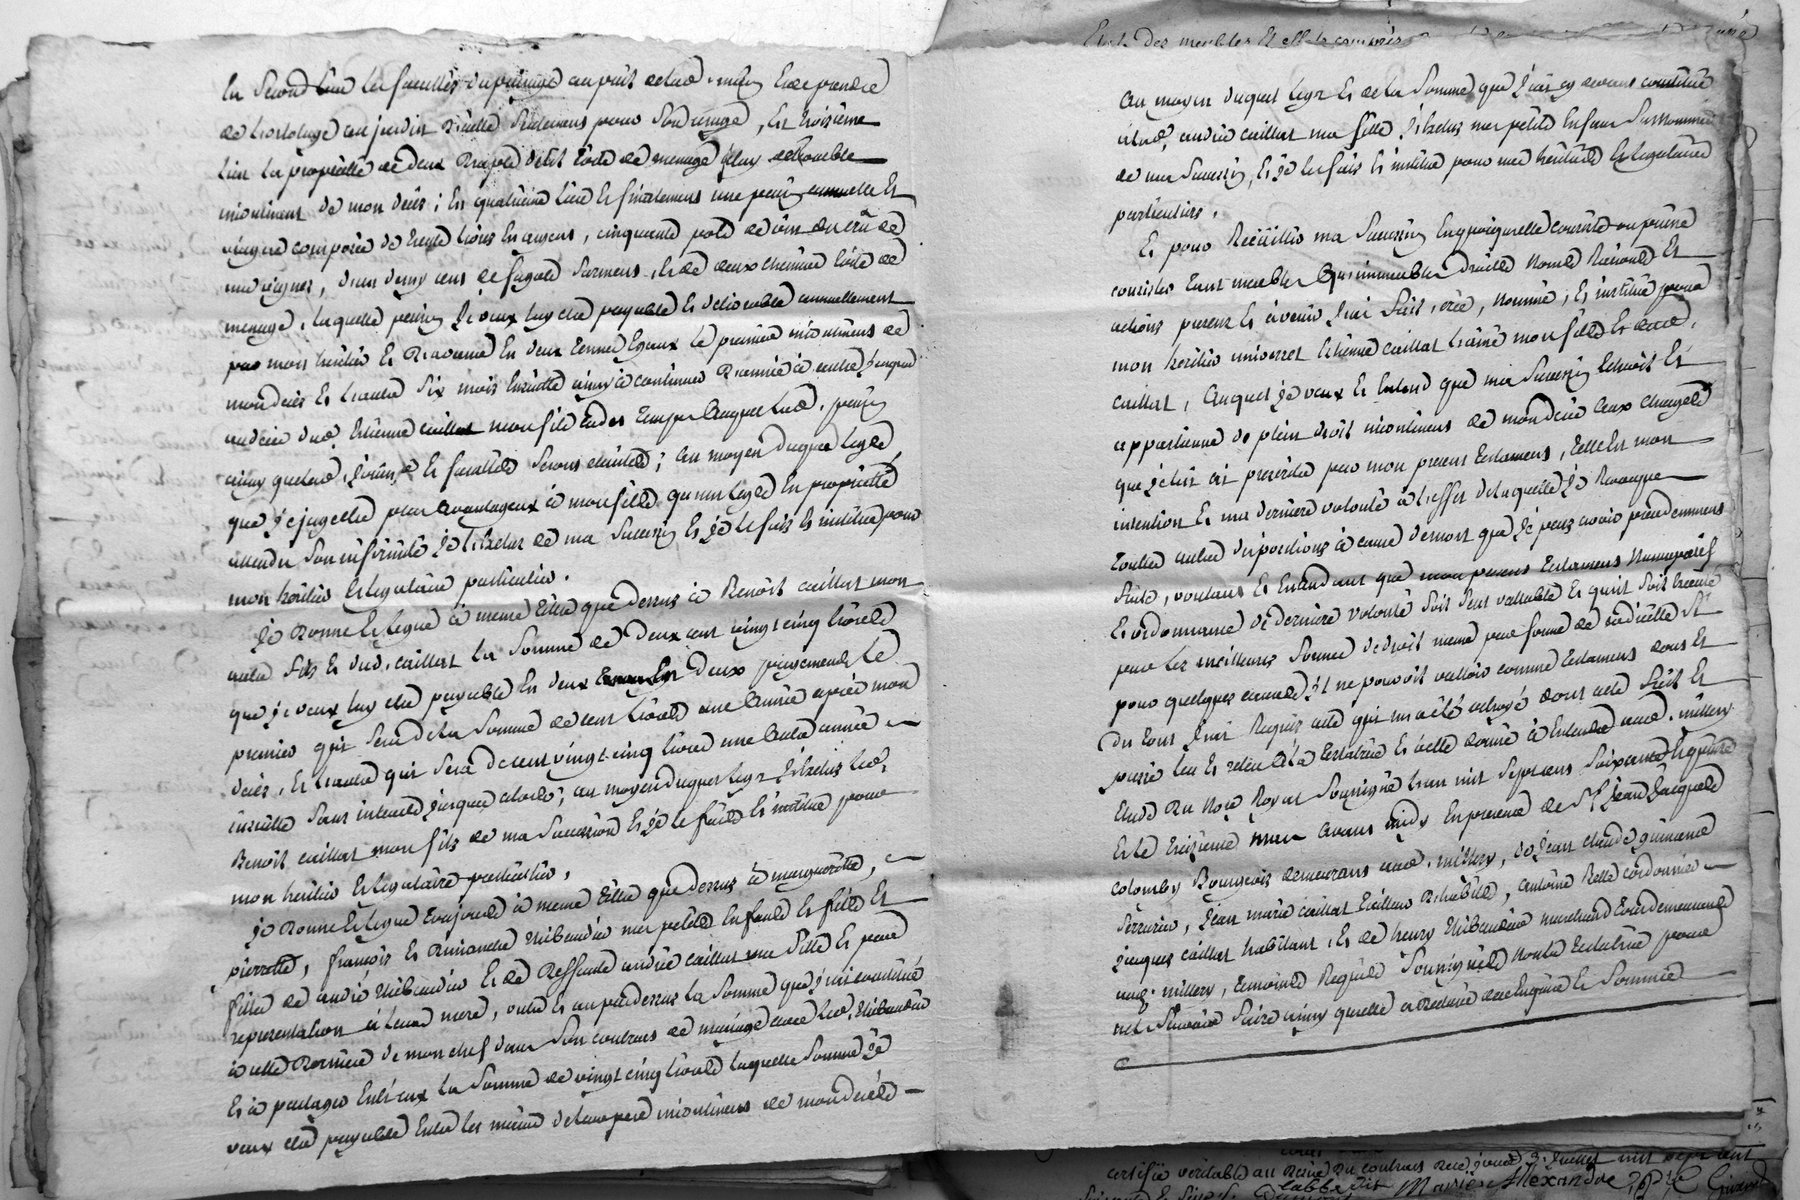 En second lieu les facultés du puisage au puit de lad. maison Et de prendre
de l'ortolage au jardin d'icelle seulement pour son usage, En troisième
lieu la propriété de deux draps de lit toile de menage
incontinent de mon décès ; En quatrième lieu Et finalement une pension annuelle Et
viagère composée de trente livres En argent, cinquante pots de vin du crû de
mes vignes, d'un demy cent de fagots sarmens, Et de deux chemises toile de
menage, laquelle pension Je veux luy être payable Et délivrable annuellement
par mon héritier Et En deux termes Egaux le premier incontinent de
mon décès Et l'autre six mois Ensuitte ainsy à continuer d'année à autre jusques
au décès dud. Estienne caillat mon fils auquel lad. pension
ainsy que lad. Et facultés seront éteintes ; au moyen duquel legs
que Je juge être plus avantageux à mon fils qu'un legs En propriété
attendu son infirmité Je l'exclus de ma succession Et Je le fais Et institue pour
mon héritier Et légataire particulier.
Je donne Et legue à meme titre que dessus à Benoit caillat mon
autre fils Et dud. caillat la somme de deux cent vingt cinq livres
que Je veux luy être payable En deux deux payements le
premier qui sera de la somme de cent livres une année après mon
décès, Et l'autre qui sera de cent vingt-cinq livres une autre année
ensuitte sans interets jusques alors ; au moyen duquel legs J'exclus led.
Benoit caillat mon fils de ma succession Et Je le fais Et institue pour
mon héritier Et légataire particulier.
Je donne Et legue toujours à meme titre que dessus à margueritte,
pierrette, françois Et Thibaudier mes petits Enfants Et fils Et
filles de andré Thibaudier Et de deffunte andrée caillat ma fille Et par
representation à leur mere, outre Et au pardessus la somme que J'ai constitué
à cette dernière de mon chef dans son contract de mariage avec led. Thibaudier
Et à partager Entreux la somme de vingt cinq livres laquelle somme je
veux être payable Entre les mains de leur pere incontinent de mon décès
Etat des meubles Et effets compris
au moyen duquel legs Et de la somme que J'ais cy devant constitué
à lad. andrée caillat ma fille J'exclus mes petits Enfans surnommés
de ma succession, Et Je les fais Et institue pour mes héritiers Et légataires
particuliers.
Et pour Recüeillir ma succession En quoiqu'elle consiste ou puisse
consister tant meubles qu'immeubles droits noms Raisons Et
actions presents Et à venir J'ai fait, créé, nommé, Et institué pour
mon héritier universel Etienne caillat l'ainé mon fils Et dud.
caillat, auquel je veux Et Entend que ma succession Echoit Et
appartienne de plein droit incontinent de mon décès aux charges
que je lui ai prescrites par mon present testament, telle Est mon
intention Et ma dernière volonté à l'effet de laquelle Je Revoque
toutes autres dispositions à cause de mort que Je peus avoir précédemment
faite, voulant Et Entendant que mon present testament nuncupatif
Et ordonnance de dernière volonté soit seul vallable Et qu'il soit Executé
par les meilleures formes de droit meme par forme de codicille si
pour quelques causes il ne pouvoit valloir comme testament dont Et
du tout J'ai Requis acte qui m'a été octroyé dont acte fait Et
passé leu Et releu à la testatrice Et à elle donné à Entendre aud. millery
Etude du Nore Royal soussigné l'an mil sept cent soixante
Et le treizième mars avant midy En presence de Sr. Jean Jacques
colomby Bourgeois demeurant aud. millery, de Jean claude guinand
serrurier, Jean marie caillat tailleur d'habits, antoine cordonnier
jacques caillat habitant, Et de henry Thibaudier marchand tous demeurants
aud. millery, temoins Requis soussignés non la testatrice pour
ne sçavoir faire ainsy qu'elle a declaré de ce Enquise Et sommée
certifié veritable au desir du contract Recu jourd. 3e Juillet mil sept cent
Marie Alexandre